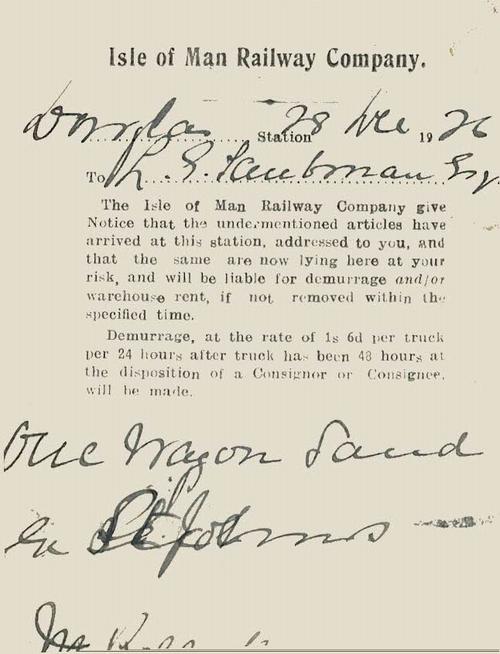 Isle of Man Railway Company.
Douglas Station 28 Dec 1926
To L. G. Taubman Esq.
The Isle of Man Railway Company give
Notice that the undermentioned articles have
arrived at this station, addressed to you, and
that the same are now lying here at your
risk, and will be liable for demurrage and/or
warehouse rent, if not removed within the
specified time.
Demurrage, at the rate of 1s 6d per truck
per 24 hours after truck has been 48 hours at
the disposition of a Consignor or Consignee,
will be made.
One Wagon Sand
ex St Johns